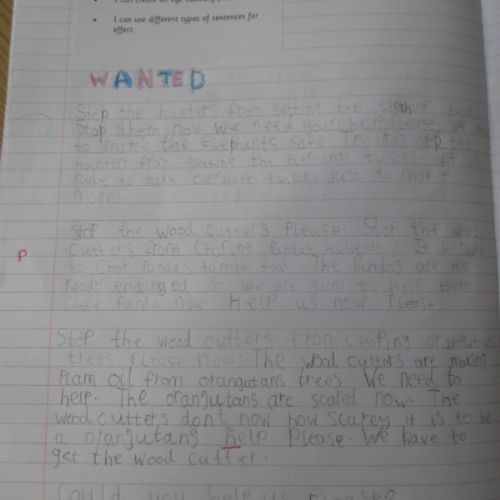 I can use different types of sentences for
effect
WANTED
Stop the hunters from getting the
Stop them now We need your help We
to the Elephants safe. stop the
hunters from getting the elephants It
rude to take elephants just to make
money
Stop the wood cutters Please. Stop the wood
P
cutters from Choping Pandas habitats. It is
to Chop Pandas food. The Pandas are
endanged So we are going to help them
cute Panda Now. Help us now Please
Stop the wood cutters from choping orangutans
trees Please Now. The wood cutters are making
Plam oil from orangutans trees. We need to
help. The orangutans are scared now. The
wood cutters dont now how scarey it is to be
a orangutang. help Please. We have to
get the wood cutter.
Could you help us Please